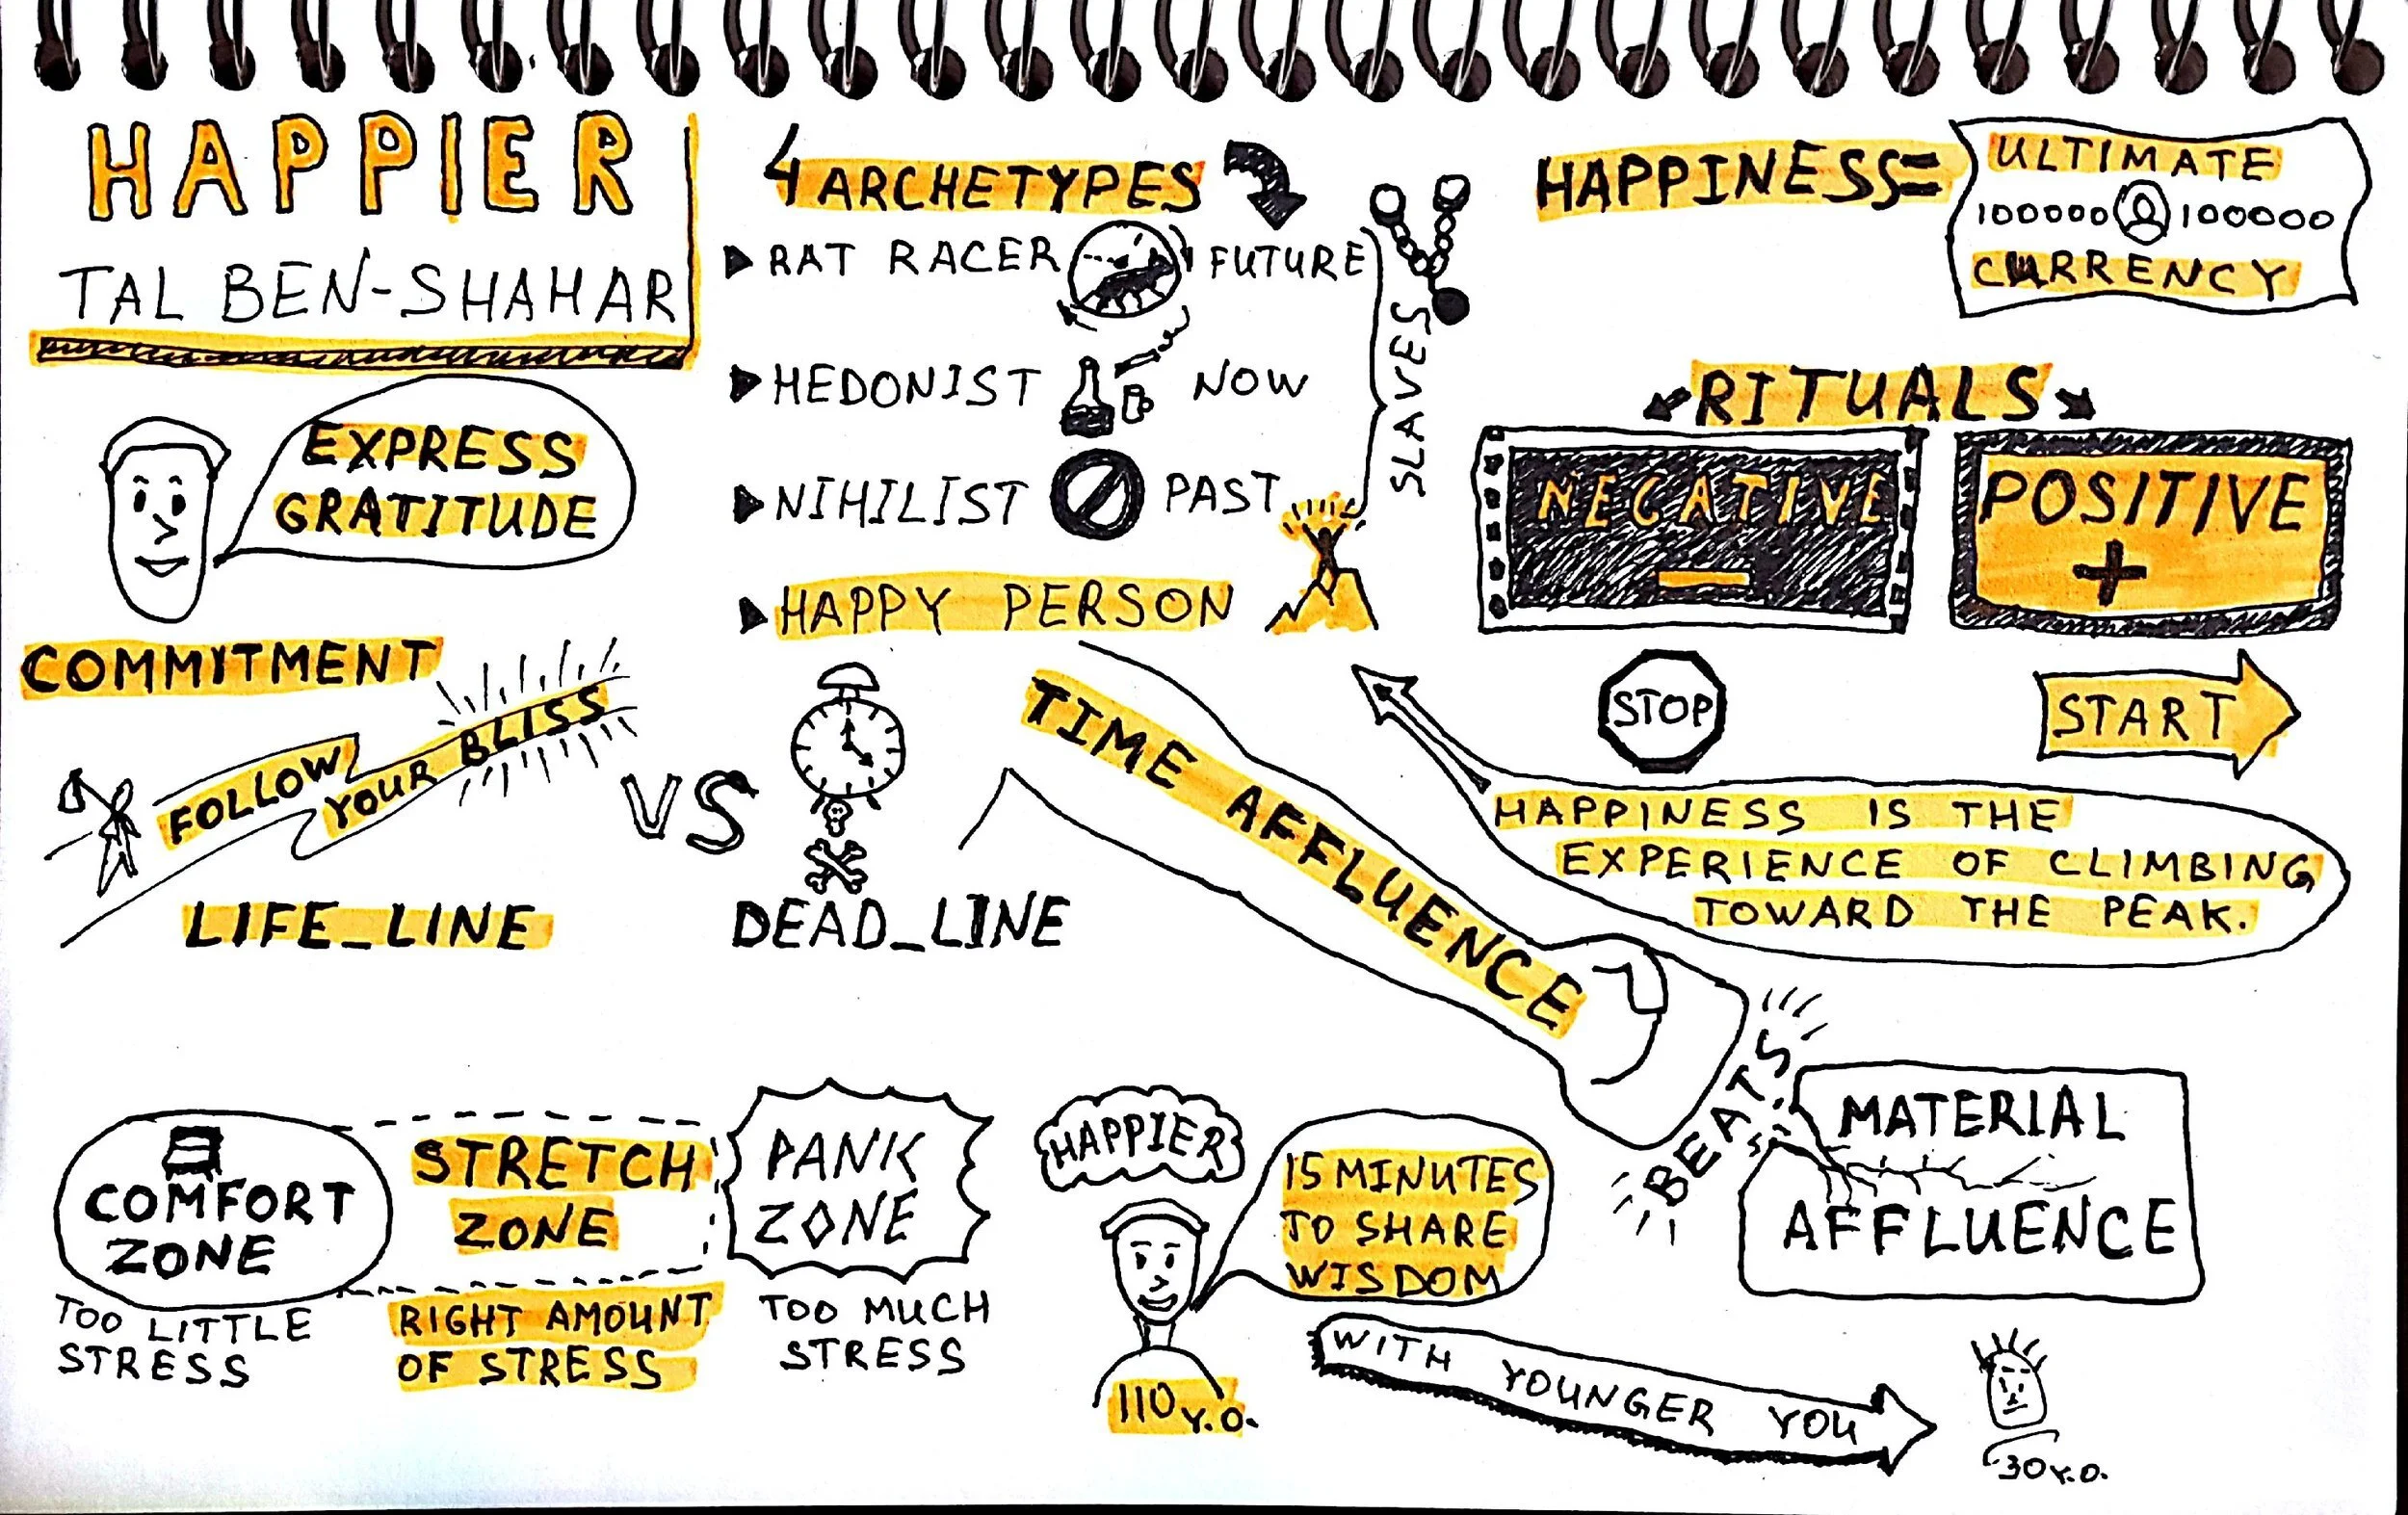 HAPPIER
TAL BEN-SHAHAR
EXPRESS
GRATITUDE
COMMITMENT
FOLLOW
YOUR BLISS
LIFE_LINE
VS
DEAD_LINE
4 ARCHETYPES
RAT RACER FUTURE
HEDONIST NOW
NIHILIST PAST
HAPPY PERSON
SLAVES
HAPPINESS=
ULTIMATE
100000 100000
CURRENCY
RITUALS
NEGATIVE
-
POSITIVE
+
STOP
START
HAPPINESS IS THE
EXPERIENCE OF CLIMBING
TOWARD THE PEAK.
TIME AFFLUENCE
BEATS
MATERIAL
AFFLUENCE
COMFORT
ZONE
TOO LITTLE
STRESS
STRETCH
ZONE
RIGHT AMOUNT
OF STRESS
PANK
ZONE
TOO MUCH
STRESS
HAPPIER
15 MINUTES
TO SHARE
WISDOM
110 Y.O.
WITH YOUNGER YOU
30 Y.O.